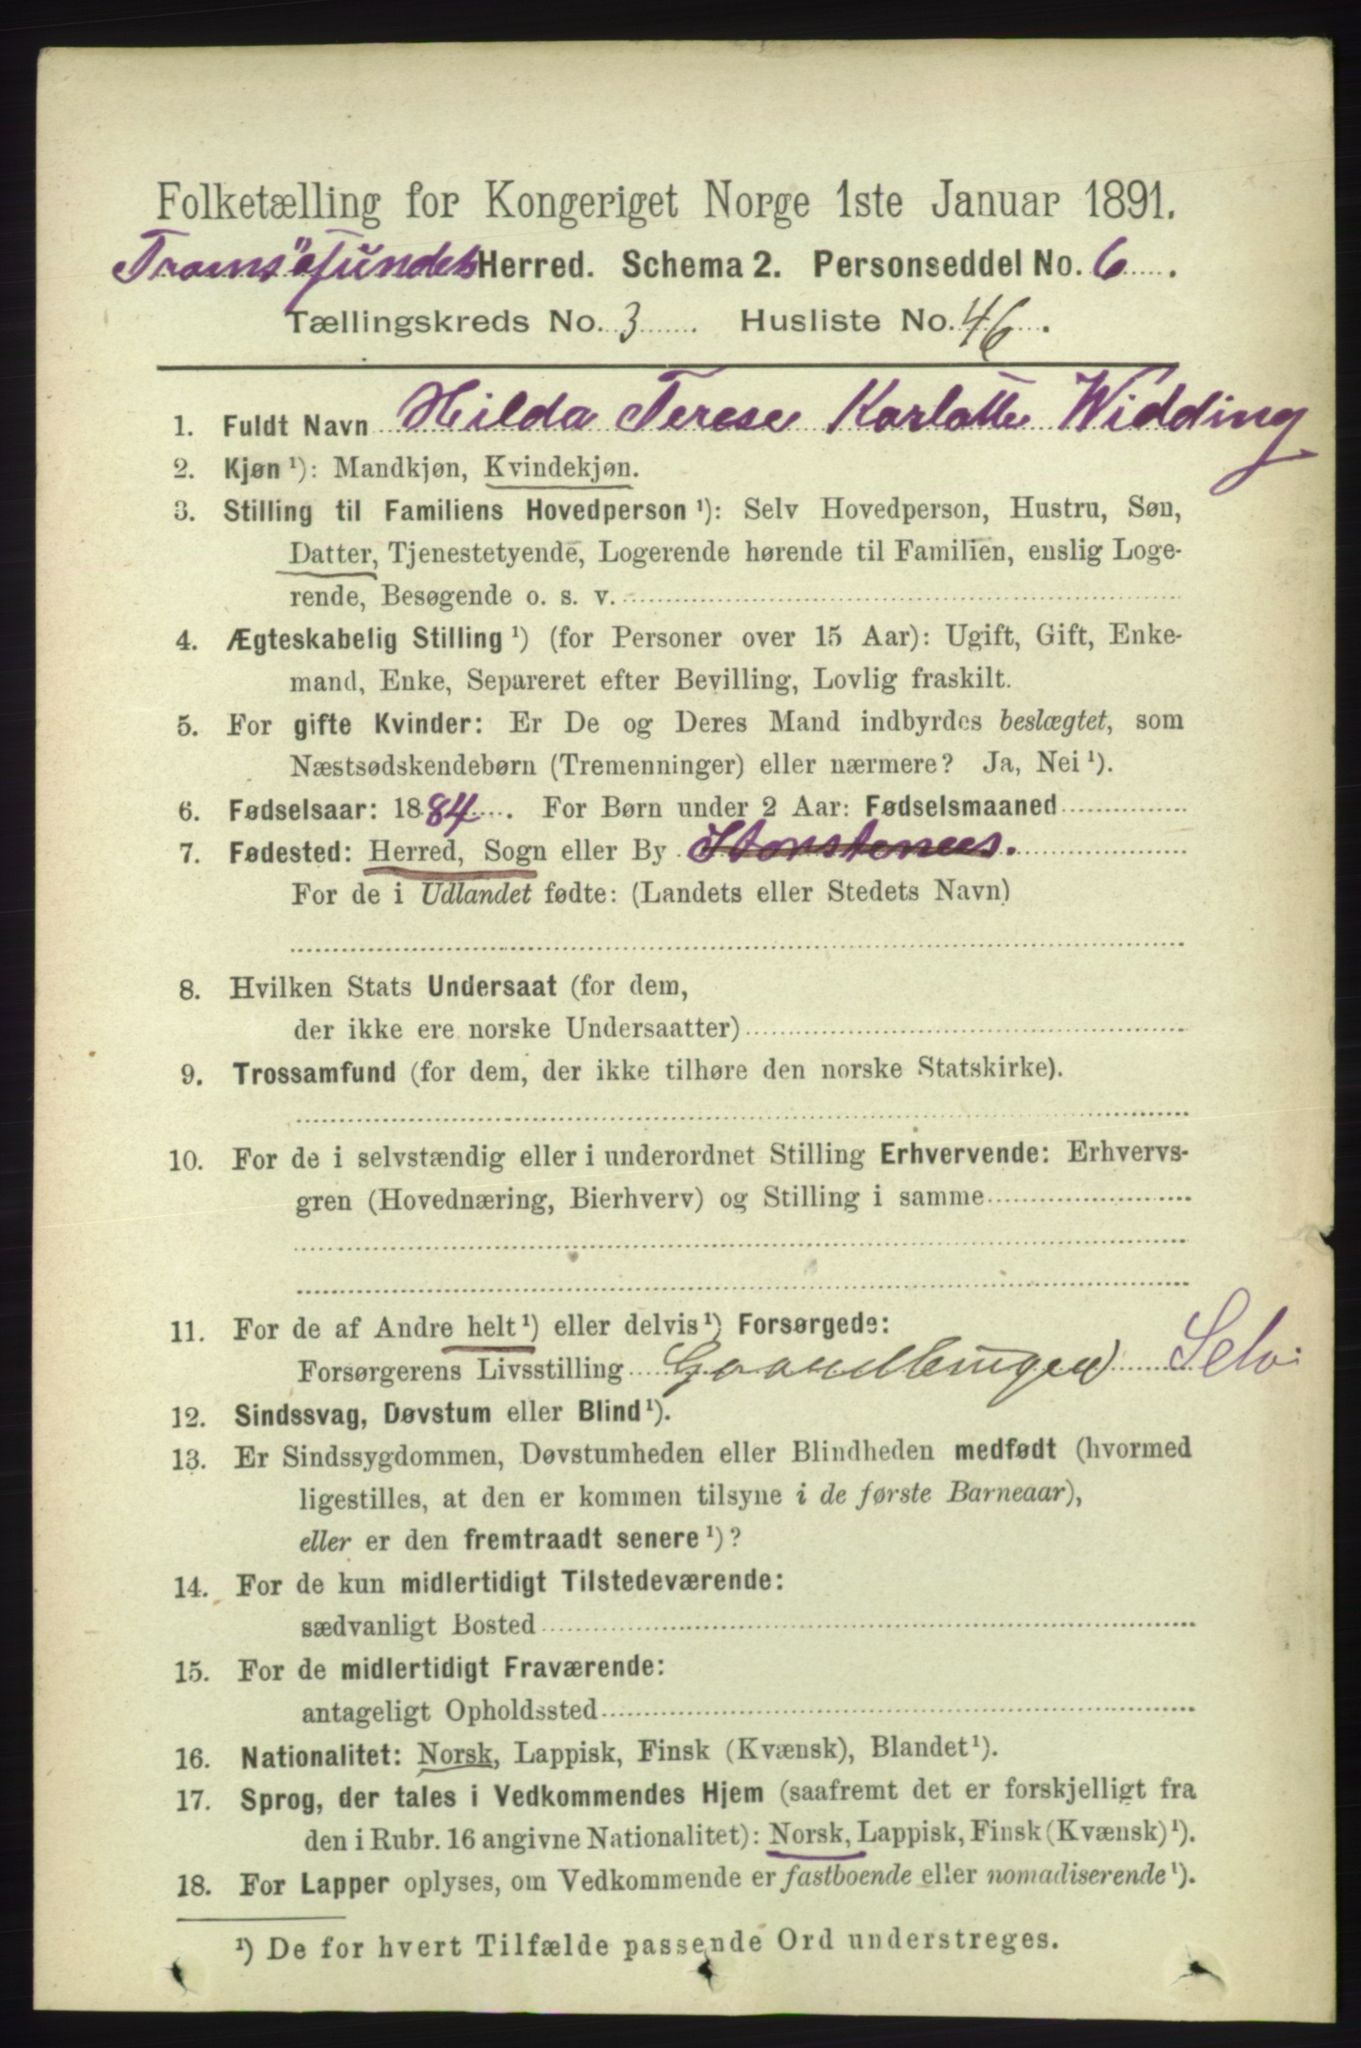 Folketælling for Kongeriget Norge 1ste Januar 1891.
Tromsøsundets Herred. Schema 2. Personseddel No. 6.
Tællingskreds No. 3. Husliste No. 46.
1. Fuldt Navn Hilda Terese Karlotte Widding
2. Kjøn ¹): Mandkjøn, Kvindekjøn.
3. Stilling til Familiens Hovedperson ¹): Selv Hovedperson, Hustru, Søn,
Datter, Tjenestetyende, Logerende hørende til Familien, enslig Loge-
rende, Besøgende o. s. v.
4. Ægteskabelig Stilling ¹) (for Personer over 15 Aar): Ugift, Gift, Enke-
mand, Enke, Separeret efter Bevilling, Lovlig fraskilt.
5. For gifte Kvinder: Er De og Deres Mand indbyrdes beslægtet, som
Næstsødskendebørn (Tremenninger) eller nærmere? Ja, Nei ¹).
6. Fødselsaar: 1884. For Børn under 2 Aar: Fødselsmaaned
7. Fødested: Herred, Sogn eller By Storstenees.
For de i Udlandet fødte: (Landets eller Stedets Navn)
8. Hvilken Stats Undersaat (for dem,
der ikke ere norske Undersaatter)
9. Trossamfund (for dem, der ikke tilhøre den norske Statskirke).
10. For de i selvstændig eller i underordnet Stilling Erhvervende: Erhvervs-
gren (Hovednæring, Bierhverv) og Stilling i samme
11. For de af Andre helt ¹) eller delvis ¹) Forsørgede:
Forsørgerens Livsstilling Gaardbruger Selv:
12. Sindssvag, Døvstum eller Blind ¹).
13. Er Sindssygdommen, Døvstumheden eller Blindheden medfødt (hvormed
ligestilles, at den er kommen tilsyne i de første Barneaar),
eller er den fremtraadt senere ¹)?
14. For de kun midlertidigt Tilstedeværende:
sædvanligt Bosted
15. For de midlertidigt Fraværende:
antageligt Opholdssted
16. Nationalitet: Norsk, Lappisk, Finsk (Kvænsk), Blandet ¹).
17. Sprog, der tales i Vedkommendes Hjem (saafremt det er forskjelligt fra
den i Rubr. 16 angivne Nationalitet): Norsk, Lappisk, Finsk (Kvænsk) ¹).
18. For Lapper oplyses, om Vedkommende er fastboende eller nomadiserende ¹).
¹) De for hvert Tilfælde passende Ord understreges.